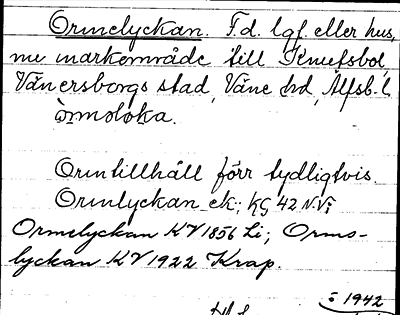 Ormelyckan. F.d. lgf. eller hus,
nu markområde till Knutsbol,
Vänersborgs stad, Väne hd, Älfsb. l.
òrmolòka.
Ormtillhåll förr tydligtvis.
Ormlyckan ek; KG 42 N.V;
Ormelyckan KV 1856 Li; Orms-
lyckan KV 1922 Krap.
1942